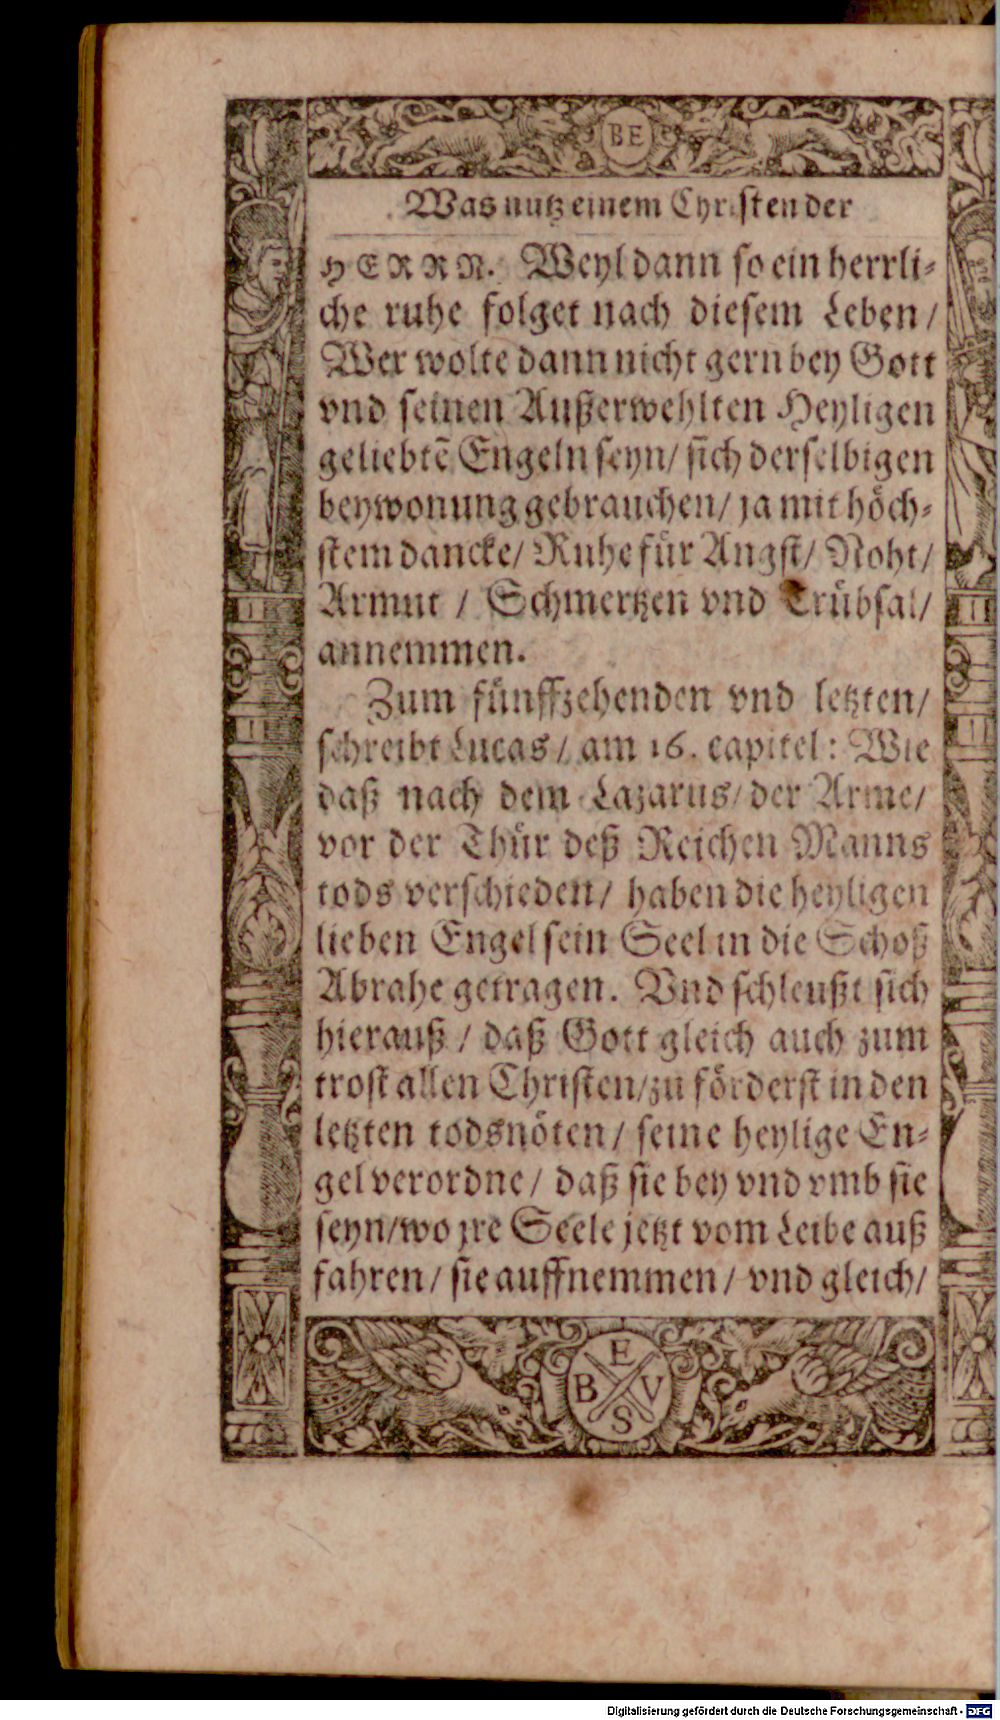 BE
Was nutz einem Christen der
HERRN. Weyl dann so ein herrli⸗
che ruhe folget nach diesem Leben /
Wer wolte dann nicht gern bey Gott
vnd seinen Außerwehlten Heyligen
geliebtẽ Engeln seyn / sich derselbigen
beywonung gebrauchen / ja mit hoͤch⸗
stem dancke / Ruhe fuͤr Angst / Noht /
Armut / Schmertzen vnd Truͤbsal /
annemmen.
Zum fuͤnffzehenden vnd letzten /
schreibt Lucas / am 16. capitel : Wie
daß nach dem Lazarus / der Arme /
vor der Thuͤr deß Reichen Manns
tods verschieden / haben die heyligen
lieben Engel sein Seel in die Schoß
Abrahe getragen. Vnd schleußt sich
hierauß / daß Gott gleich auch zum
trost allen Christen / zu foͤrderst in den
letzten todsnoͤten / seine heylige En⸗
gel verordne / daß sie bey vnd vmb sie
seyn / wo jre Seele jetzt vom Leibe auß
fahren / sie auffnemmen / vnd gleich /
E
B V
S
Digitalisierung gefördert durch die Deutsche Forschungsgemeinschaft - DFG